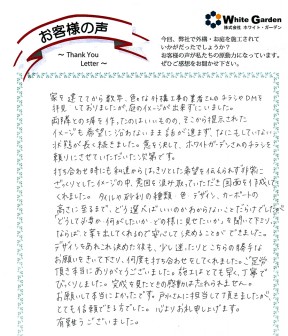 お客様の声
～ Thank You
Letter ～
White Garden
株式会社 ホワイト・ガーデン
今回、弊社で外構・お庭を施工されて
いかがだったでしょうか?
お客様の声が私たちの原動力になっています。
ぜひご感想をお聞かせ下さい。
家を建ててから数年、色々な外構工事の業者さんのチラシやDMを
拝見しておりましたが、庭のイメージが出来ずにいました。
両隣との塀を作ったのはいいものの、そこから提示された
イメージも希望に沿わないまま話が進まず、なにもしていない
状態が長く続きました。意を決して、ホワイトガーデンさんのチラシを
頼りにさせていただいた次第です。
打ち合わせ時にも知識からはきりとした希望を伝えられず非常に
ざっくりとしたイメージの中、意図を汲み取っていただき図面を作成して
くれました。タイルや砂利の種類、色、デザイン、カーポートの
高さに至るまで、どう選べばいいのかわからないことだらけでしたが、
どうして必要か、何がしたいか、どの様に見せたいか、を聞いて下さり、
ならば、と案を出してくれるので安心して決めることができました。
デザインをあれこれ決めた後も、少し違ったりとこちらの勝手な
お願いをきいて下さり、何度も打ち合わせをしてくれました。ご足労
頂き本当にありがとうございました。施工はとても早く、丁寧で
びっくりしました。完成を見たときの感動は忘れられません。
お願いして本当によかったです。戸村さんに担当して頂きましたが、
とても信頼できる方でした。心よりお礼申し上げます。
有難うございました。